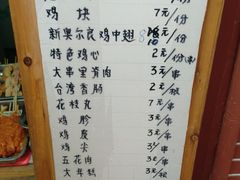 鸡块 7元/份
新奥尔良鸡中翅 8 10元/份
特色鸡心 2元/份(串)
大串里资肉 3元/串
台湾香肠 2元/串
花枝丸 3元/串
鸡胗 3元/串
鸡皮 3元/串
鸡尖 3元/串
五花肉 3元/串
大年糕 3元/串